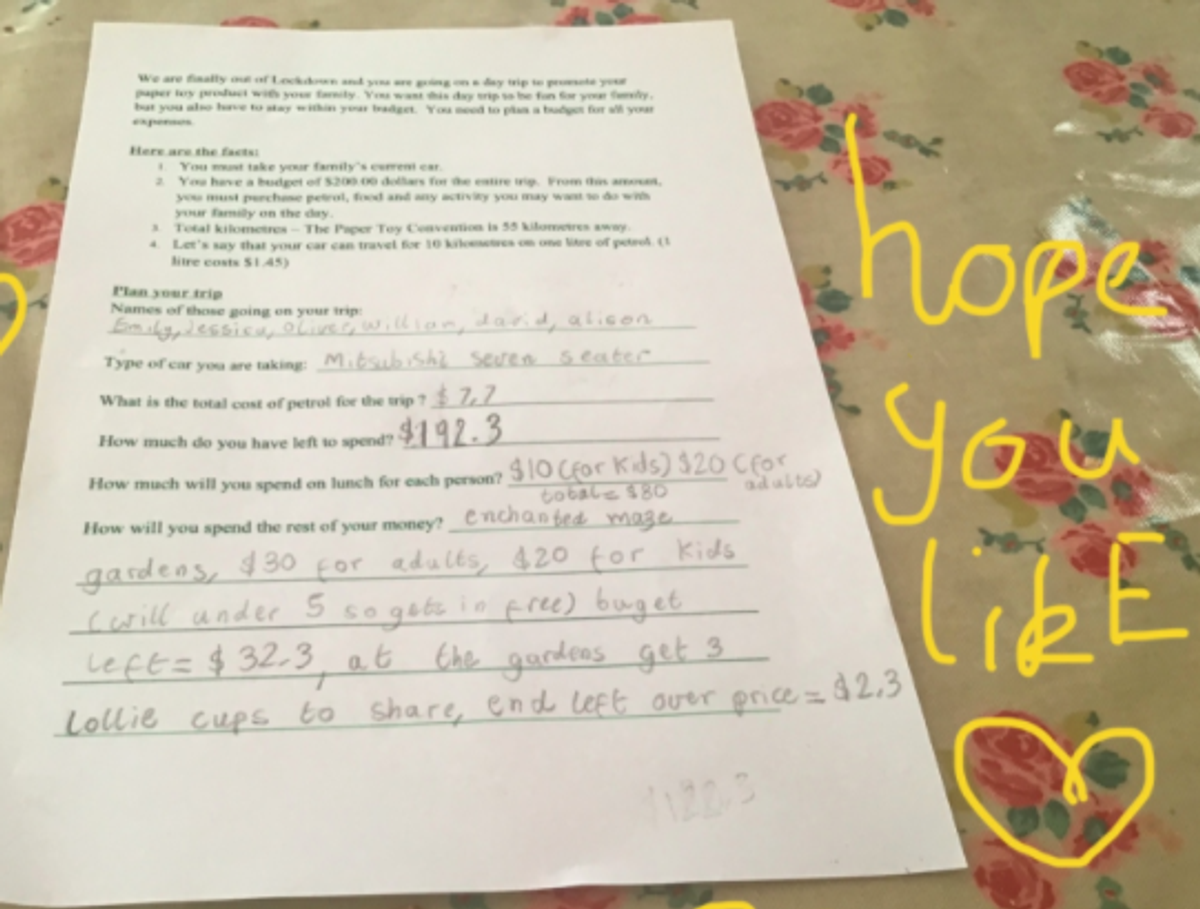 We are finally out of Lockdown and you are going on a day trip to promote your
paper toy product with your family. You want this day trip to be fun for your family,
but you also have to stay within your budget. You need to plan a budget for all your
expenses.
Here are the facts:
1. You must take your family's current car.
2. You have a budget of $200.00 dollars for the entire trip. From this amount,
you must purchase petrol, food and any activity you may want to do with
your family on the day.
3. Total kilometres – The Paper Toy Convention is 55 kilometres away.
4. Let's say that your car can travel for 10 kilometres on one litre of petrol. (1
litre costs $1.45)
Plan your trip
Names of those going on your trip:
Emily, Jessica, Oliver, William, david, alison
Type of car you are taking: Mitsubishi seven seater
What is the total cost of petrol for the trip ? $ 7.7
How much do you have left to spend? $192.3
How much will you spend on lunch for each person? $10 (for Kids) $20 (for
adults)
total = $80
How will you spend the rest of your money? enchanted maze
gardens, $30 for adults, $20 for kids
(will under 5 so gets in free) buget
left = $32.3, at the gardens get 3
Lollie cups to share, end left over price = $2.3
hope
you
likE